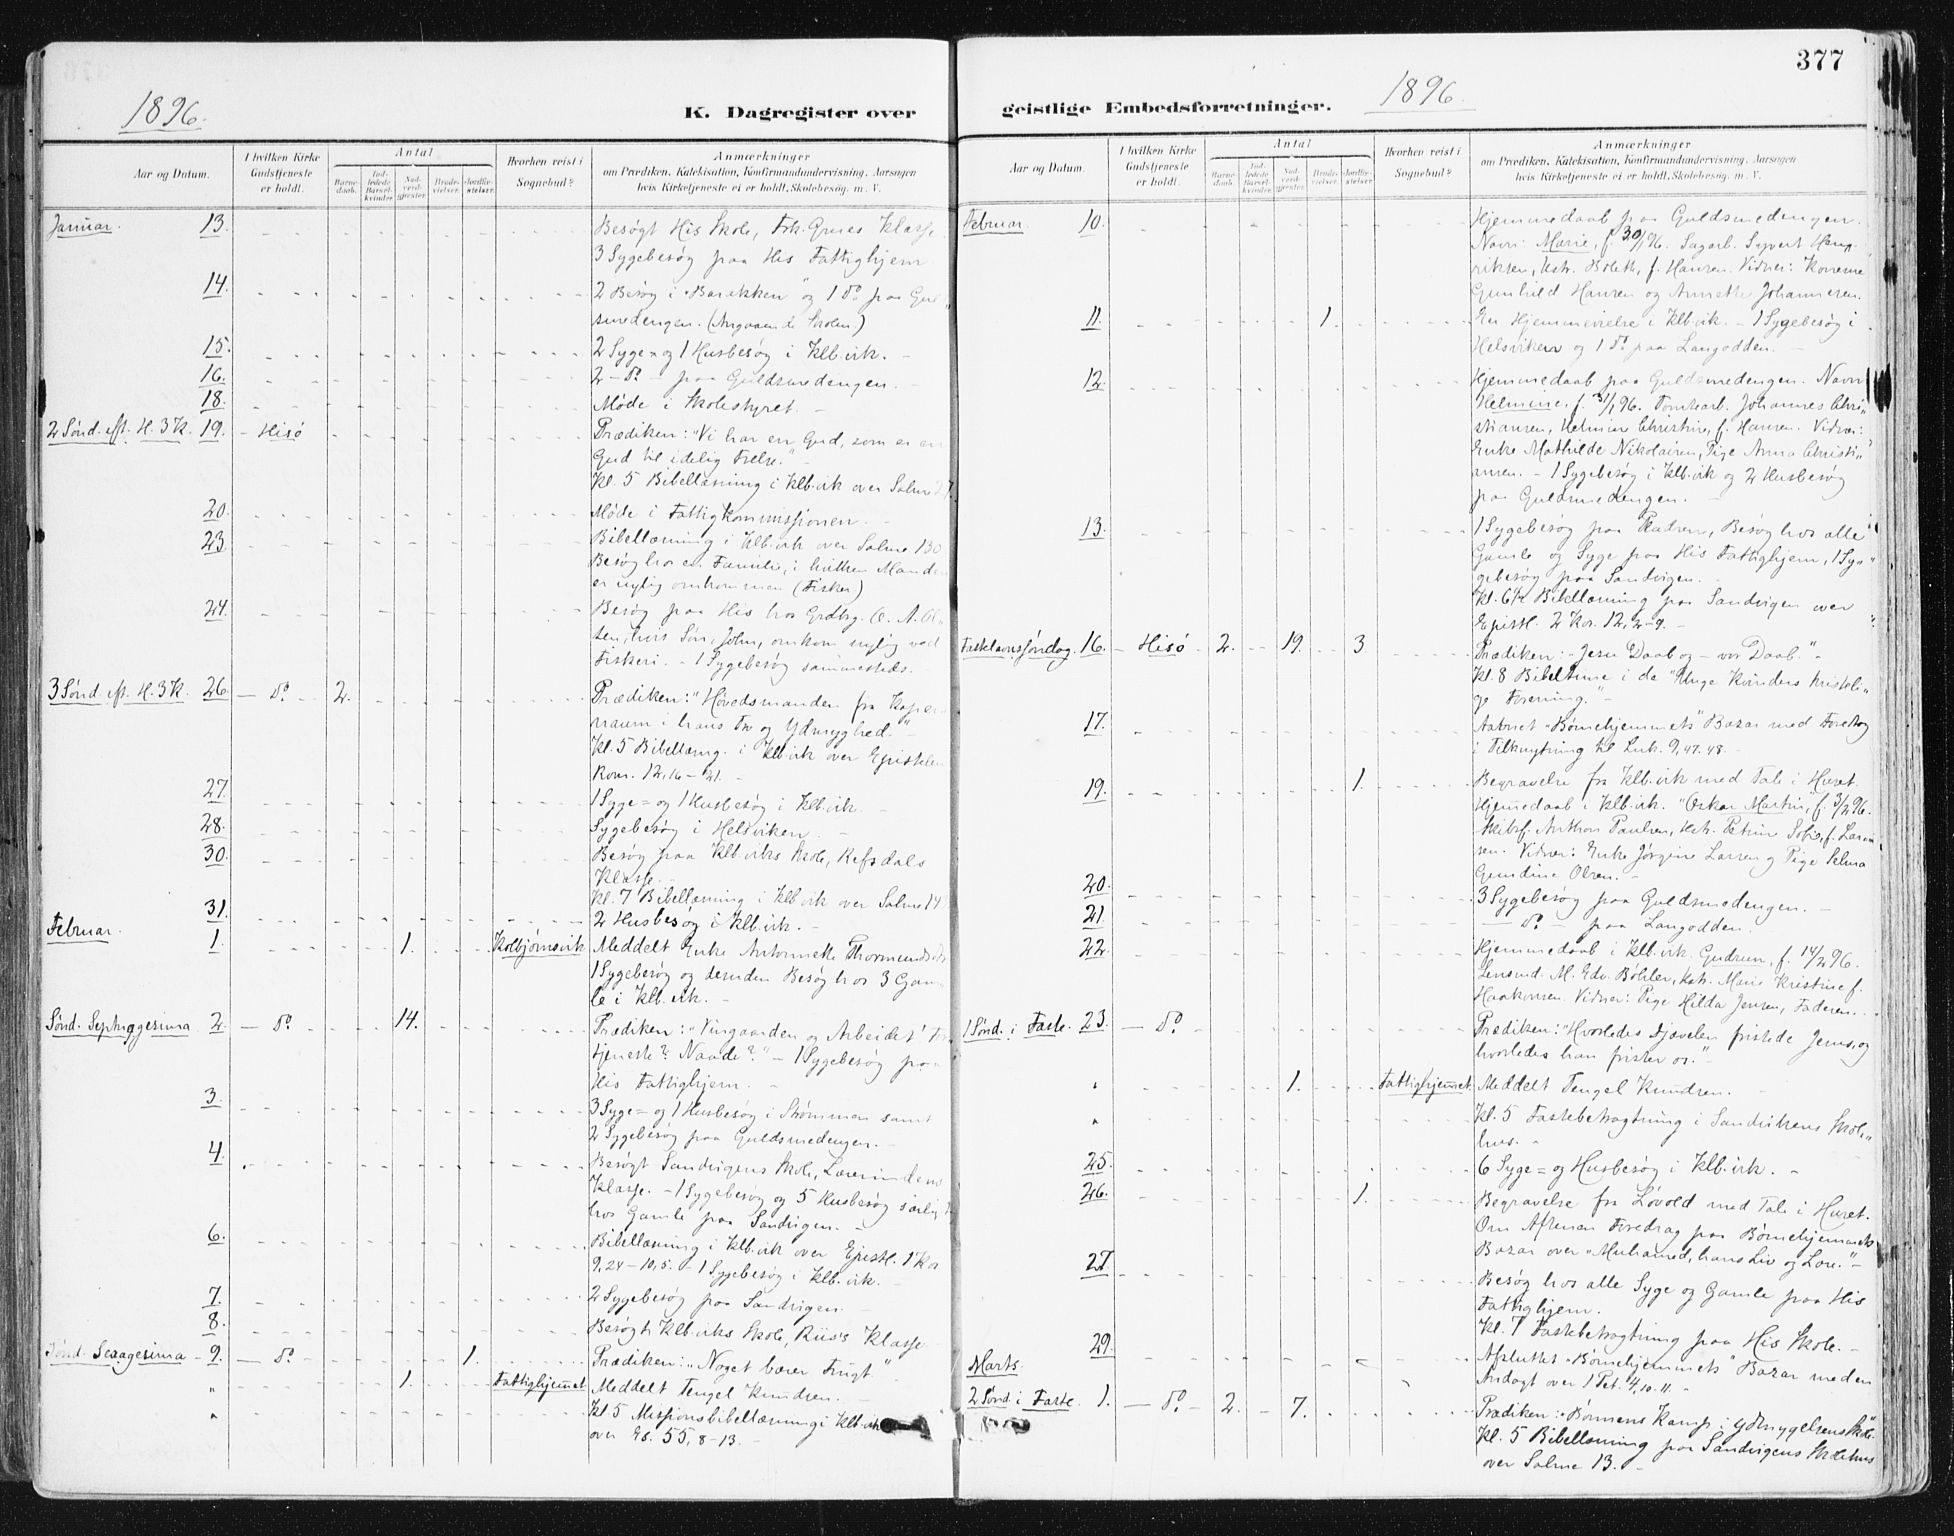 377
1896.
K. Dagregister over
geistlige Embedsforretninger.
1896.
Aar og Datum.
I hvilken Kirke Gudstjeneste er holdt.
Antal
Barne-daab.
Ind-ledede Barsel-kvinder.
Nad-verd-gjester.
Brude-vielser.
Jordfæ-stelser.
Hvorhen reist i Sognebud?
Anmærkninger
om Prædiken, Katekisation, Konfirmandundervisning, Aarsagen
hvis Kirketjeneste ei er holdt, Skolebesøg, m. V.
Januar. 13. Besøgt His Skole, Frk. Grues Klasse
3 Sygebesøg paa His Fattighjem
14. 2 Besøg i "Barakken" og 1 do paa Guld
smedengen. (Angaaende Skolen)
15. 2 Syge= og 1 Husbesøg i Klb.vik. -
16. 2 - do - paa Guldsmedengen.
18. Møde i Skolestyret. -
2 Sønd. eft. H. 3 K. 19. - Hisø Prædiken: "Vi har en Gud, som er en
Gud til idelig Frelse."
Kl. 5 Bibellæsning i Klb.vik over Salme 27.
20. Møde i Fattigkommissionen. -
23. Bibellæsning i Klb.vik over Salme 130
Besøg hos en Familie, i hvilken Manden
er nylig omkommen (Fisker)
24. Besøg paa His hos Grdbrg. O. A. Ol-
sen, hvis Søn, John, omkom nylig ved
Fiskeri. - 1 Sygebesøg sammesteds.
3 Sønd. eft. H. 3 K. 26. - do 2. Prædiken: "Høvedsmanden fra Kaper-
naum i hans Tro og Ydmyghed."
Kl. 5 Bibellæsng. i Klb.vik over Epistelen
Rom. 12, 16-21. -
27. 1 Syge= og 1 Husbesøg i Klb.vik. -
28. Sygebesøg i Helsviken. -
30. Besøg paa Klb.viks Skole, Refsdals
Klasse. -
Kl. 7 Bibellæsning i Klb.vik over Salme 14
31. 2 Husbesøg i Klb.vik. -
Februar.
1. 1. Kolbjørnsvik Meddelt Enke Antonette Thormundsen
1 Sygebesøg og desuden Besøg hos 3 Gam
le i Klb.vik. -
Sønd. Septuagesima 2. - do 14. Prædiken: "Vingaarden og Arbeidet" For
tjeneste? Naade?" - 1 Sygebesøg paa
His Fattighjem. -
3. 3 Syge= og 1 Husbesøg i Strømmen samt
2 Sygebesøg paa Guldsmedengen. -
4. Besøgt Sandvigens Skole, Lærerindens
Klasse. - 1 Sygebesøg og 5 Husbesøg særlig
hos Gamle paa Sandvigen. -
6. Bibellæsning i Klb.vik over Epistl. 1 Kor
9, 24 - 10, 5. - 1 Sygebesøg i Klb.vik. -
7. 2 Sygebesøg paa Sandvigen. -
8. Besøgt Klb.viks Skole, Riis's Klasse
Sønd. Sexagesima - 9. - do 1. Prædiken: "Noget bærer Frugt".
" 1. Fattighjemmet Meddelt Tengel Knudsen.
" Kl 5 Missionsbibellæsning i Klb.vik
over Es. 55, 8-13. -
Aar og Datum.
I hvilken Kirke Gudstjeneste er holdt.
Antal
Barne-daab.
Ind-ledede Barsel-kvinder.
Nad-verd-gjester.
Brude-vielser.
Jordfæ-stelser.
Hvorhen reist i Sognebud?
Anmærkninger
om Prædiken, Katekisation, Konfirmandundervisning, Aarsagen
hvis Kirketjeneste ei er holdt, Skolebesøg, m. V.
Februar. 10. Hjemmedaab paa Guldsmedengen.
Navn: Marie, f. 30/1 96. Sagarb. Syvert Hen-
riksen, Hstr. Boleth, f. Hansen. Vidner: Konerne
Gunhild Hansen og Annette Johannesen.
11. 1. En Hjemmevielse i Klb.vik. - 1 Sygebesøg i
Helsviken og 1 do paa Langodden. -
12. Hjemmedaab paa Guldsmedengen. Navn
Helmine, f. 31/1 96. Tomtearb. Johannes Chri"
stiansen, Helmine Christine, f. Hansen. Vidner:
Enke Mathilde Nikolaisen, Pige Anna Christi"
ansen. - 1 Sygebesøg i Klb.vik og 2 Husbesøg
paa Guldsmedengen. -
13. 1 Sygebesøg paa Pladsen, Besøg hos alle
Gamle og Syge paa His Fattighjem, 1 Sy"
gebesøg paa Sandvigen.
Kl. 6 1/2 Bibellæsning paa Sandvigen over
Epistl. 2 Kor. 12, 2-9. -
Fastelavnssøndag. 16. - Hisø 2. 19. 3 Prædiken: "Jesu Daab og - vor Daab." -
Kl. 8 Bibeltime i de "Unge Kvinders kristeli"
ge Forening." -
17. Aabnet "Børnehjemmets" Bazar med Foredrag
i Tilknytning til Luk. 9, 47-48. -
19. 1. Begravelse fra Klb.vik med Tale i Huset.
Hjemmedaab i Klb.vik. "Oskar Martin," f. 3/2 96.
Skibsf. Anthon Paulsen, Hstr. Petrine Sofie, f. Lar-
sen. Vidner: Enke Jørgine Larsen og Pige Selma
Gundine Olsen. -
20. 3 Sygebesøg paa Guldsmedengen. -
21. - do - paa Langodden. -
22. Hjemmedaab i Klb.vik. Gudrun, f. 14/2 96.
Lensmd. M. Edv. Bøhler, Hstr. Marie Kristine f.
Haakonsen. Vidner: Pige Hilda Jensen, Faderen.
1 Sønd. i Faste. 23. - do Prædiken: "Hvorledes Djævelen fristede Jesus, og
hvorledes han frister os." -
" 1. Fattighjemmet Meddelt Tengel Knudsen. -
" Kl. 5 Fastebetragtning i Sandvikens Skole"
hus. -
25. 6 Syge= og Husbesøg i Klb.vik. -
26. 1. Begravelse fra Løvold med Tale i Huset.
Om Aftenen Foredrag paa Børnehjemmets
Bazar over "Muhamed, hans Liv og Lære." -
27. Besøg hos alle Syge og Gamle paa His
Fattighjem.
Kl. 7 Fastebetragtning paa His Skole. -
29. Afsluttet "Børnehjemmets" Bazar med en
Andagt over 1 Pet. 4, 10-11. -
Marts.
2 Sønd. i Faste. 1. - do - 2. - 7. Prædiken: "Bønnens Kamp i Ydmygelsens Skole."
Kl. 5 Bibellæsning paa Sandvigens Skolehus
over Salme 13. -